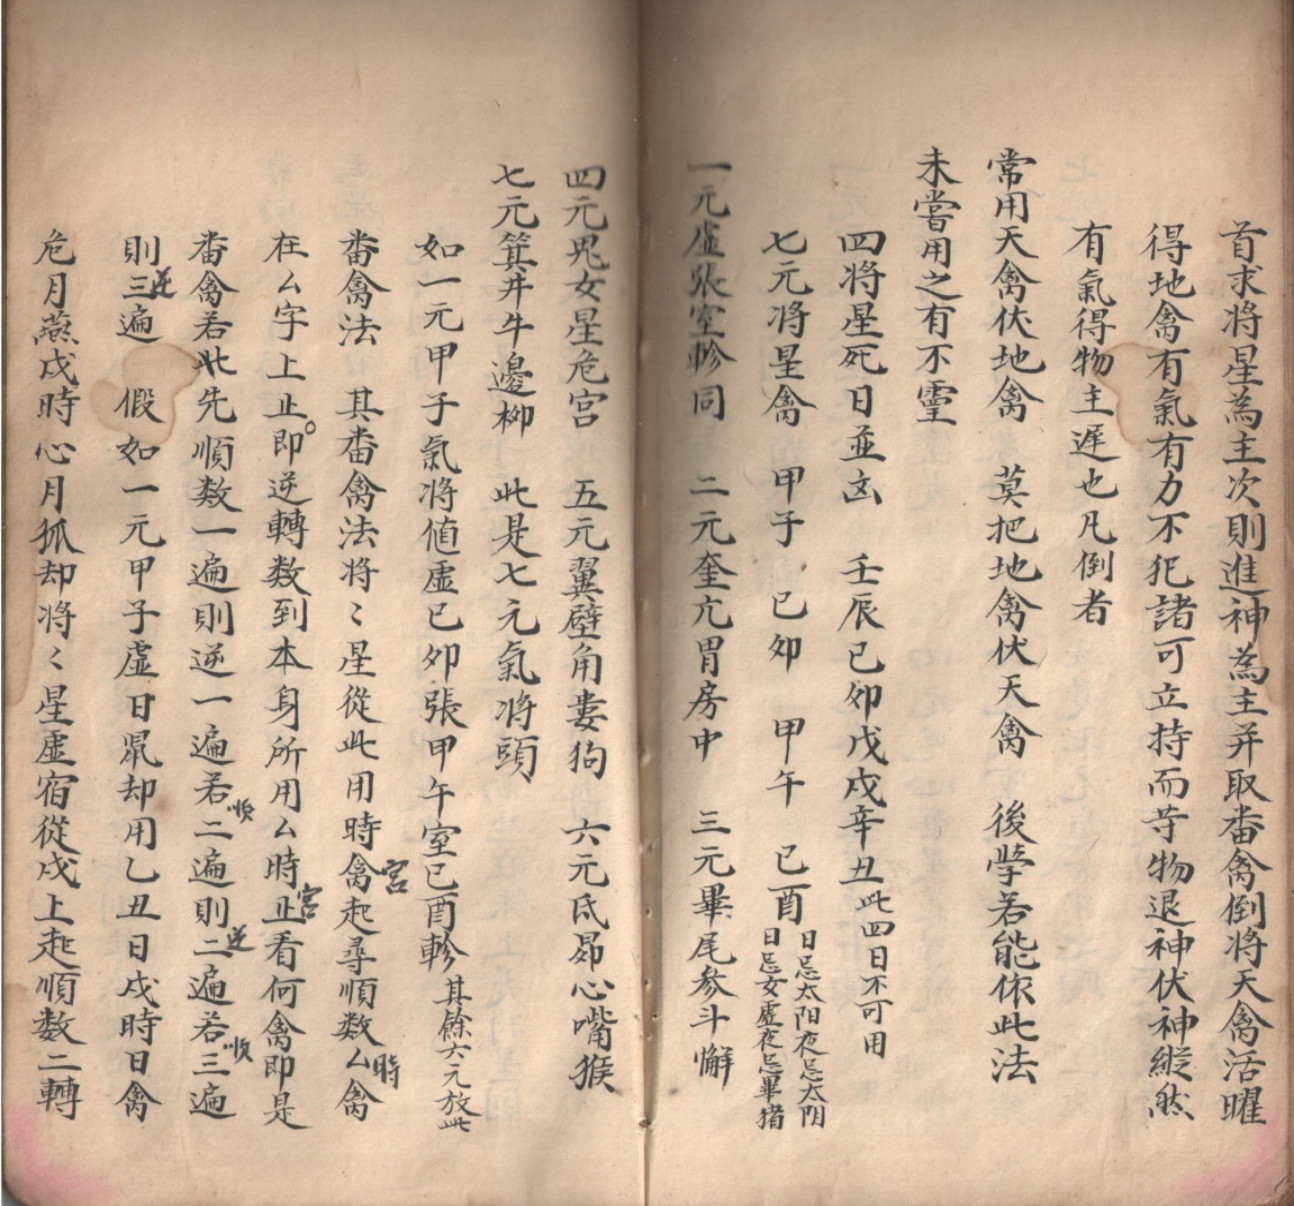 首求将星為主次則進神為主并取畨禽倒将天禽活曜
得地禽有氣有力不犯諸可立持而等物退神伏神縱然
有氣得物主遲也凡倒者
常用天禽伏地禽　莫把地禽伏天禽　後學若能依此法
未嘗用之有不靈
四将星死日並凶　壬辰己卯戊戌辛丑此四日不可用
七元将星禽　甲子　己卯　甲午　己酉日忌太阳夜忌太阴
日忌女虚夜忌畢猪
一元虚張室軫同　二元奎亢胃房中　三元畢尾参斗懈
四元鬼女星危宫　五元翼壁角婁狗　六元氐昴心嘴猴
七元箕井牛邊柳　此是七元氣将頭
如一元甲子氣将值虚己卯張甲午室己酉軫其餘六元放此
畨禽法　其畨禽法将〻星從此用時禽宮起尋順数厶時禽
在厶字上止。即逆轉数到本身所用厶時宮止看何禽即是
畨禽若此先順数一遍則逆一遍若順二遍則逆二遍若順三遍
則逆三遍　假如一元甲子虚日鼠却用乙丑日戌時日禽
危月燕戌時心月狐却将〻星虚宿從戌上起順数二轉